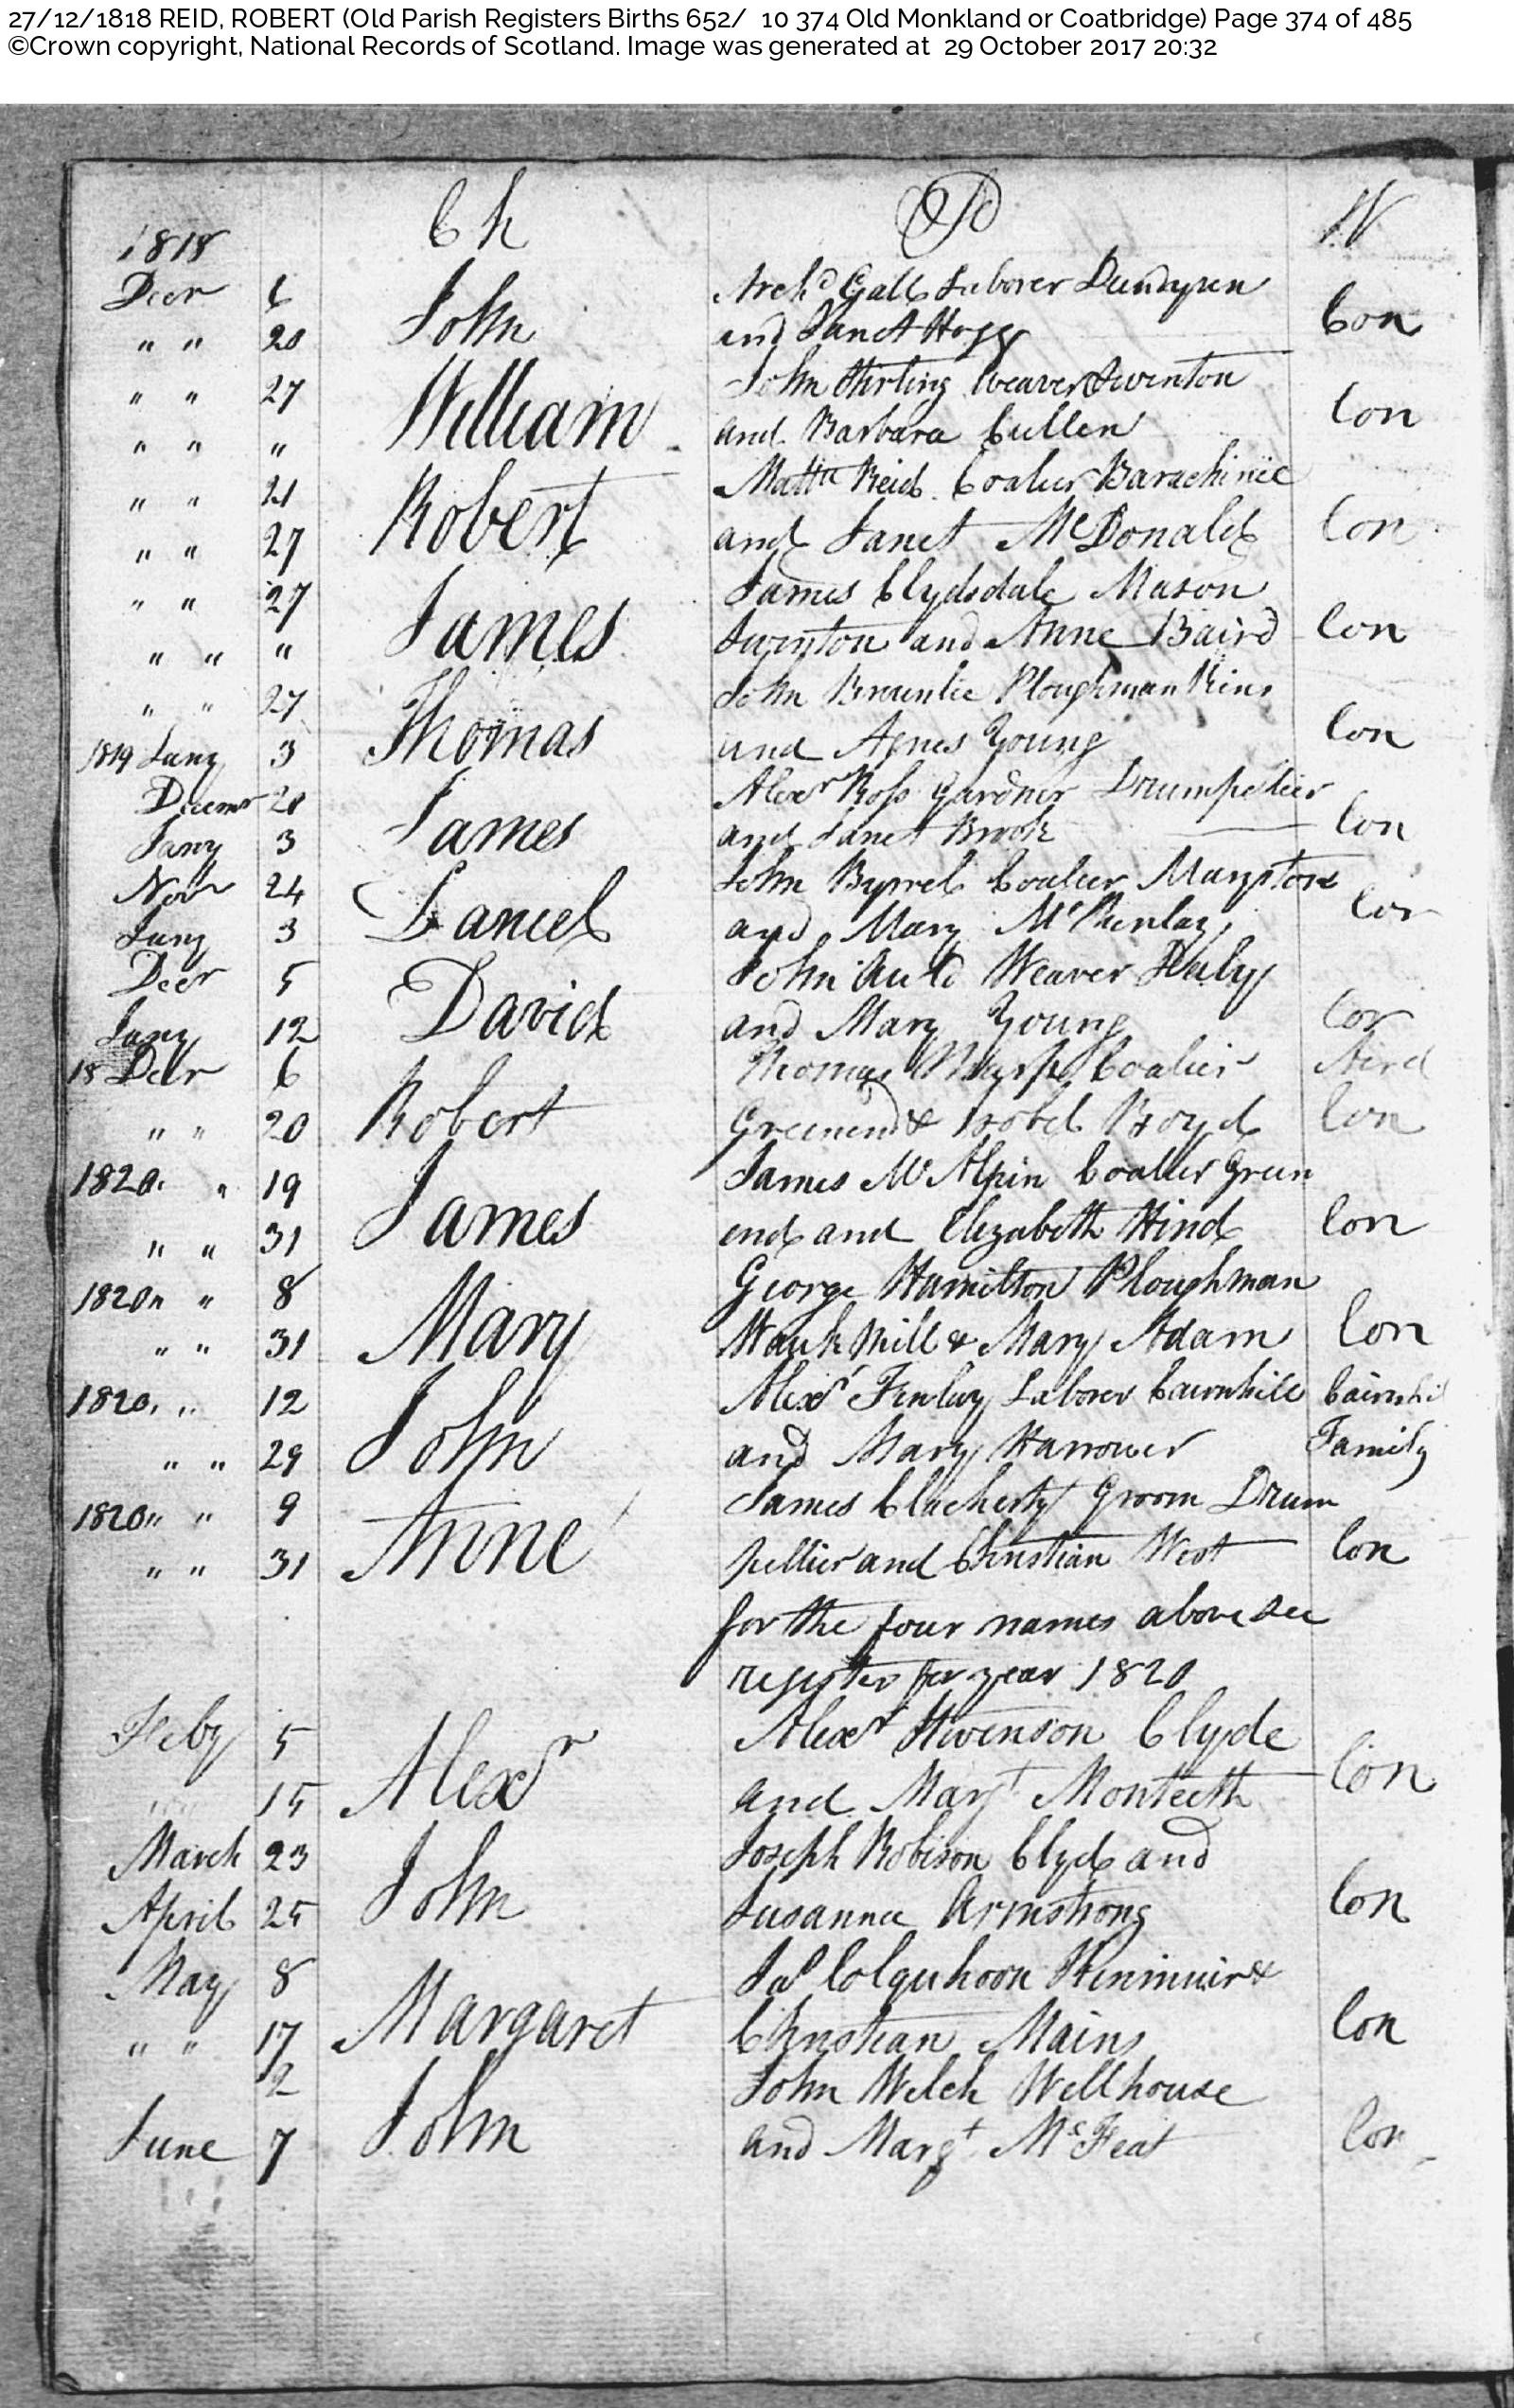 27/12/1818 REID, ROBERT (Old Parish Registers Births 652/ 10 374 Old Monkland or Coatbridge) Page 374 of 485
©Crown copyright, National Records of Scotland. Image was generated at 29 October 2017 20:32
Ch P W
1818
Decr 6 John Archd Gall Laborer Dundyven Con
" " 20 and Janet Hogg
" " 27 William John Stirling Weaver Swinton Con
" " " and Barbara Cullen
" " 21 Robert Mattw Reid Coalier Barachinie Con
" " 27 and Janet McDonald
" " 27 James James Clydsdale Mason Con
" " " Swinton and Anne Baird
" " 27 Thomas John Brownlie Ploughman Rins Con
1819 Jany 3 and Agnes Young
Decemr 28 James Alexr Ross Gardner Drumpelier Con
Jany 3 and Janet Brook
Nov 24 Daniel John Byrrel Coalier Maryston Con
Jany 3 and Mary
Decr 5 David John Auld Weaver
Jany 12 and Mary Young Con
18 Decr 6 Robert Thomas Coalier Aird
" " 20 Greenend & Isobel Boyd Con
1820 " 19 James James McAlpin Coalier Green
" " 31 end and Elizabeth Hind Con
1820 " " 8 Mary George Hamilton Ploughman
" " 31 Wauk Mill & Mary Adam Con
1820 " " 12 John Alexr Finlay Laborer Cairnhill Cairnhil
" " 29 and Mary Harrower Family
1820 " " 9 Anne James Clacherty Groom Drum
" " 31 pellier and Christian West Con
for the four names above see
register for year 1820
Feby 5 Alexr Alexr Stivenson Clyde Con
15 and Margt Monteeth
March 23 John Joseph Robison Clyde and Con
April 25 Susanna Armstrong
May 8 Margaret Jas Colquhoon &
" " 17 Christian Mains Con
2 John John Welch Wellhouse
June 7 and Margt McFeat Con